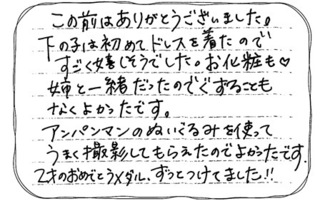 この前はありがとうございました。
下の子は初めてドレスを着たので
すごく嬉しそうでした。お化粧も♡
姉と一緒だったのでぐずることも
なくよかったです。
アンパンマンのぬいぐるみを使って
うまく撮影してもらえたのでよかったです。
2才のおめでとうメダル、ずっとつけてました!!